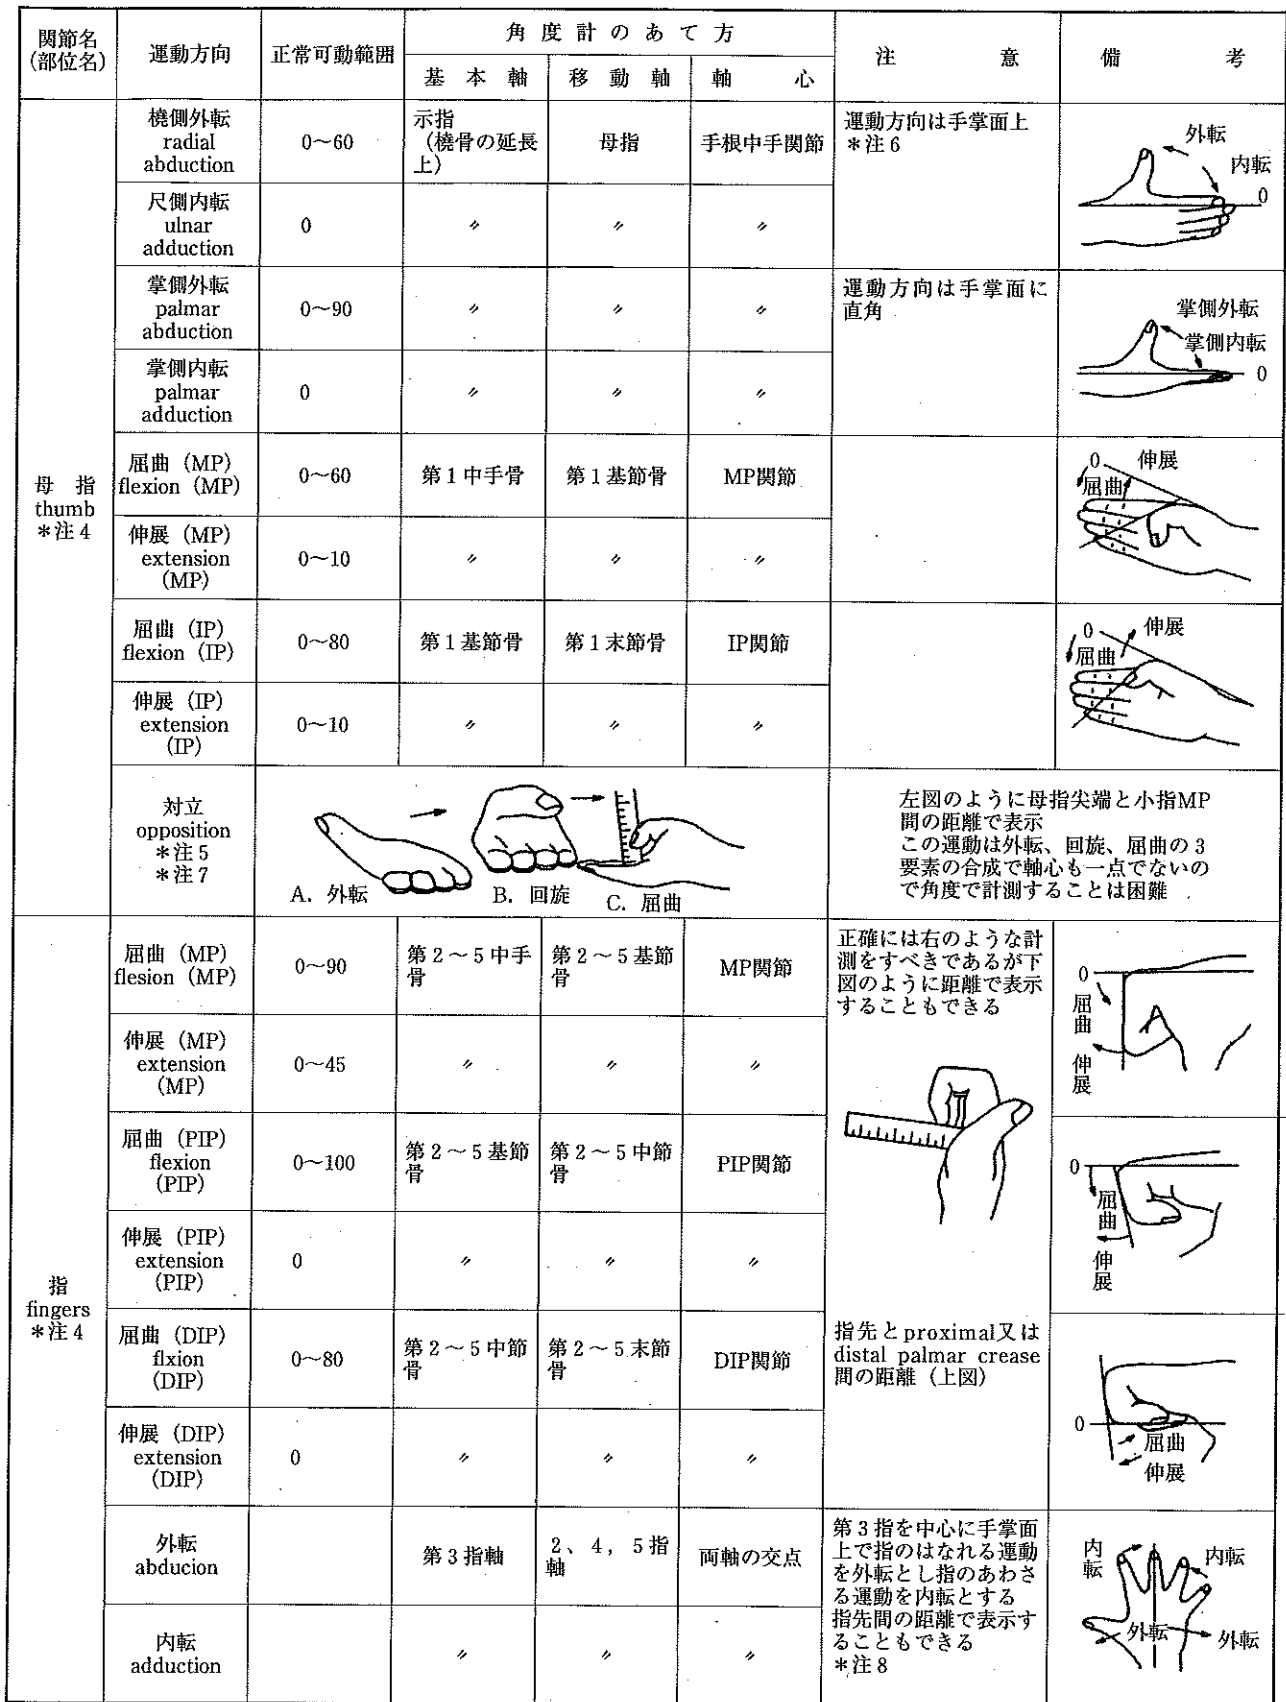 関節名
(部位名)
運動方向
正常可動範囲
角度計のあて方
基本軸
移動軸
軸心
注意
備考
母指
thumb
*注4
橈側外転
radial
abduction
0~60
示指
(橈骨の延長
上)
母指
手根中手関節
運動方向は手掌面上
*注6
外転
内転
0
尺側内転
ulnar
adduction
0
〃
〃
〃
掌側外転
palmar
abduction
0~90
〃
〃
〃
運動方向は手掌面に
直角
掌側外転
掌側内転
0
掌側内転
palmar
adduction
0
〃
〃
〃
屈曲 (MP)
flexion (MP)
0~60
第1中手骨
第1基節骨
MP関節
0
伸展
屈曲
伸展 (MP)
extension
(MP)
0~10
〃
〃
〃
屈曲 (IP)
flexion (IP)
0~80
第1基節骨
第1末節骨
IP関節
0
伸展
屈曲
伸展 (IP)
extension
(IP)
0~10
〃
〃
〃
対立
opposition
*注5
*注7
A. 外転
B. 回旋
C. 屈曲
左図のように母指尖端と小指MP
間の距離で表示
この運動は外転、回旋、屈曲の3
要素の合成で軸心も一点でないの
で角度で計測することは困難
指
fingers
*注4
屈曲 (MP)
flesion (MP)
0~90
第2~5中手
骨
第2~5基節
骨
MP関節
正確には右のような計
測をすべきであるが下
図のように距離で表示
することもできる
0
屈曲
伸展
伸展 (MP)
extension
(MP)
0~45
〃
〃
〃
屈曲 (PIP)
flexion
(PIP)
0~100
第2~5基節
骨
第2~5中節
骨
PIP関節
0
屈曲
伸展
伸展 (PIP)
extension
(PIP)
0
〃
〃
〃
屈曲 (DIP)
flxion
(DIP)
0~80
第2~5中節
骨
第2~5末節
骨
DIP関節
指先とproximal又は
distal palmar crease
間の距離 (上図)
0
屈曲
伸展
伸展 (DIP)
extension
(DIP)
0
〃
〃
〃
外転
abducion
第3指軸
2、4, 5指
軸
両軸の交点
第3指を中心に手掌面
上で指のはなれる運動
を外転とし指のあわさ
る運動を内転とする
指先間の距離で表示す
ることもできる
*注8
内転
内転
外転
外転
内転
adduction
〃
〃
〃